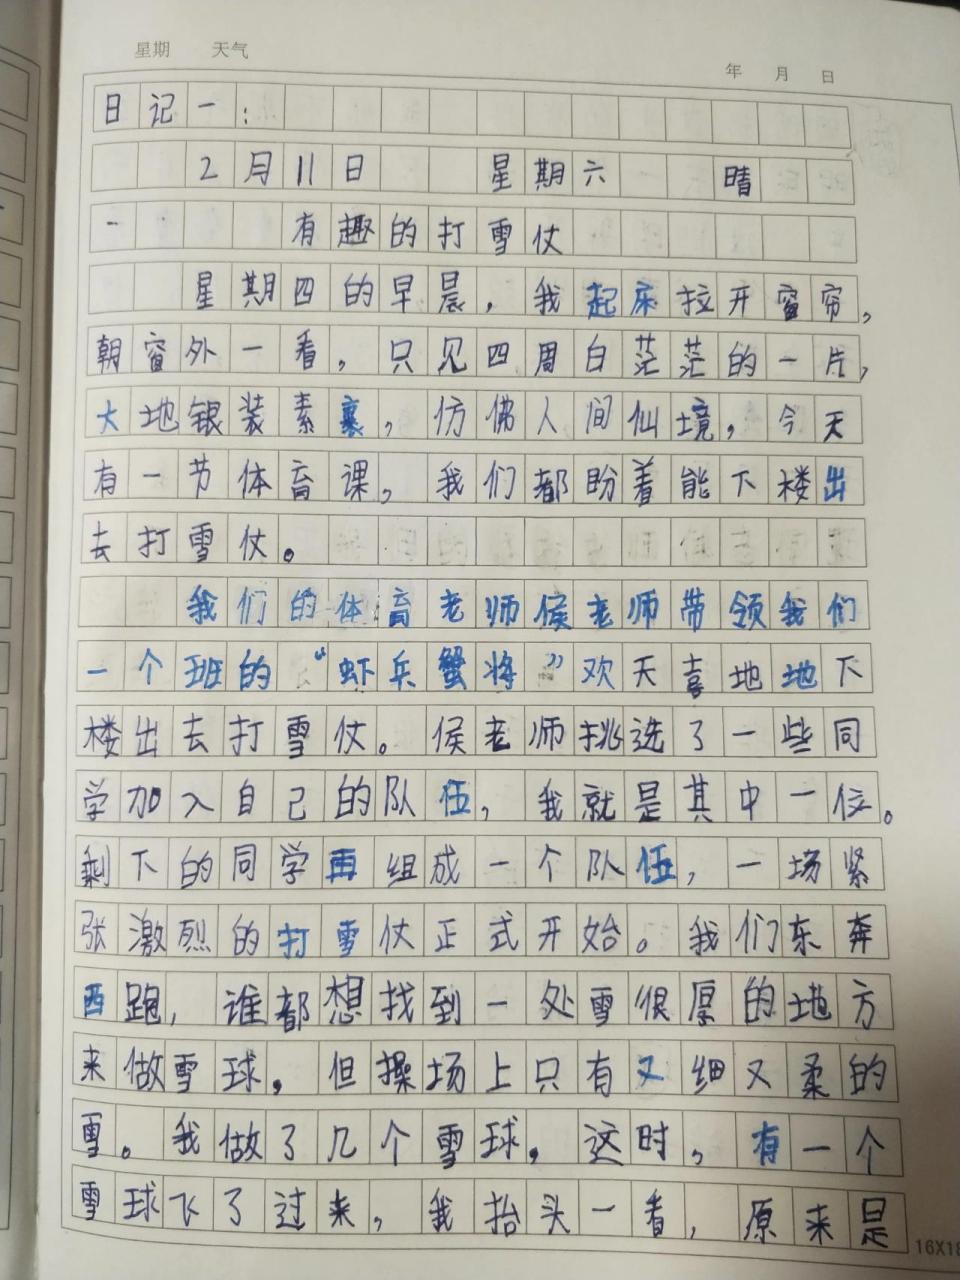 星期 天气
年 月 日
日记一：
2月11日 星期六 晴
有趣的打雪仗
星期四的早晨，我起床拉开窗帘，
朝窗外一看，只见四周白茫茫的一片，
大地银装素裹，仿佛人间仙境，今天
有一节体育课，我们都盼着能下楼出
去打雪仗。
我们的体育老师侯老师带领我们
一个班的“虾兵蟹将”欢天喜地地下
楼出去打雪仗。侯老师挑选了一些同
学加入自己的队伍，我就是其中一位。
剩下的同学再组成一个队伍，一场紧
张激烈的打雪仗正式开始。我们东奔
西跑，谁都想找到一处雪很厚的地方
来做雪球，但操场上只有又细又柔的
雪。我做了几个雪球，这时，有一个
雪球飞了过来，我抬头一看，原来是
16X18